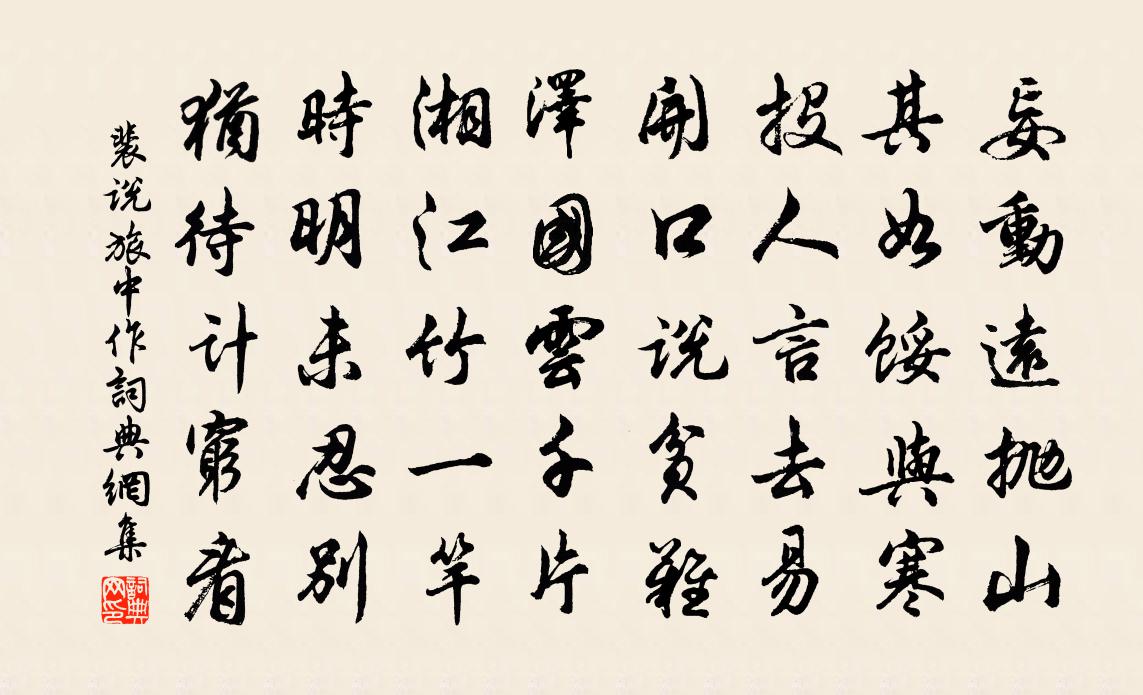 妄動遠抛山
其如餒與寒
投人言去易
開口說貧難
澤國雲千片
湘江竹一竿
時明未忍別
猶待計窮看
裴說旅中作詞典網集
詞典網印